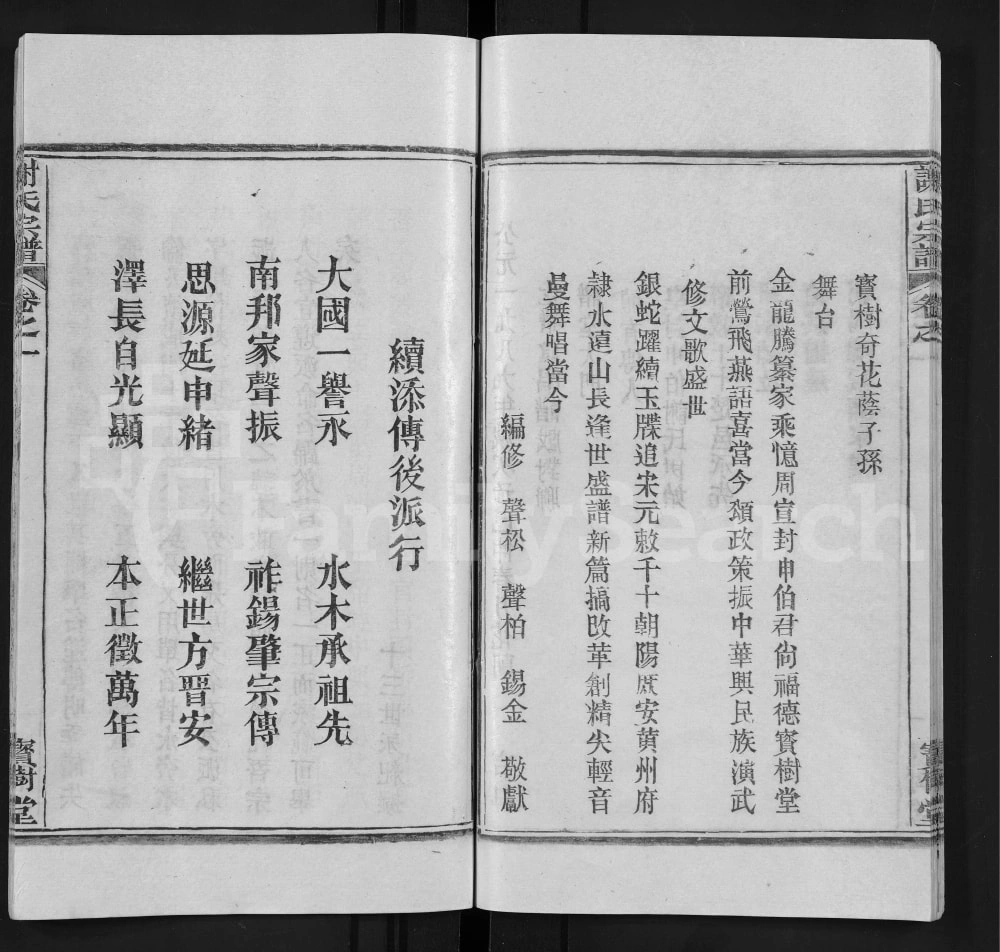 謝氏宗譜 卷之一
寶樹堂
寶樹奇花蔭子孫
舞台
金龍騰纂家乘憶周宣封申伯君尙福德寶樹堂
前鶯飛燕語喜當今頌政策振中華興民族演武
修文歌盛世
銀蛇躍續玉牒追宋元敕千十朝陽庶安黄州府
隷水遠山長逢世盛譜新篇搞改革創精尖輕音
曼舞唱當今
編修 聲松 聲柏 錫金 敬獻
續添傳後派行
大國一譽永 水木承祖先
南邦家聲振 祚錫肇宗傳
思源延申緒 繼世方晋安
澤長自光顯 本正徵萬年
謝氏宗譜 卷之一
寶樹堂
FamilySearch